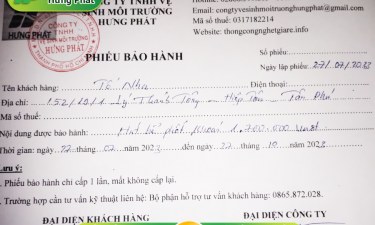 Hưng Phát
CÔNG TY TNHH VỆ
SINH MÔI TRƯỜNG
HƯNG PHÁT
HƯNG PHÁT
CÔNG TY
TNHH
VỆ SINH MÔI TRƯỜNG
HƯNG PHÁT
Email: congtyvesinhmoitruonghungphat@gmail.com
Mã số thuế: 0317182214
Website: thongcongnghetgiare.info
PHIẾU BẢO HÀNH
Số phiếu:
Ngày lập phiếu: 27/07/2023
Tên khách hàng: Tố Như
Địa chỉ: 152/20/1 Lý Thánh Tông - Hiệp Tân - Tân Phú
Mã số thuế:
Nội dung được bảo hành: Hút bể phốt 1.700.000
Thời gian: ngày 22 tháng 02 năm 2023 đến ngày 22 10 năm 2023
Lưu ý:
. Phiếu bảo hành chỉ cấp 1 lần, mất không cấp lại.
. Trường hợp cần tư vấn kỹ thuật liên hệ: Bộ phận hỗ trợ tư vấn khách hàng: 0865.872.028.
ĐẠI DIỆN KHÁCH HÀNG
ĐẠI DIỆN CÔNG TY